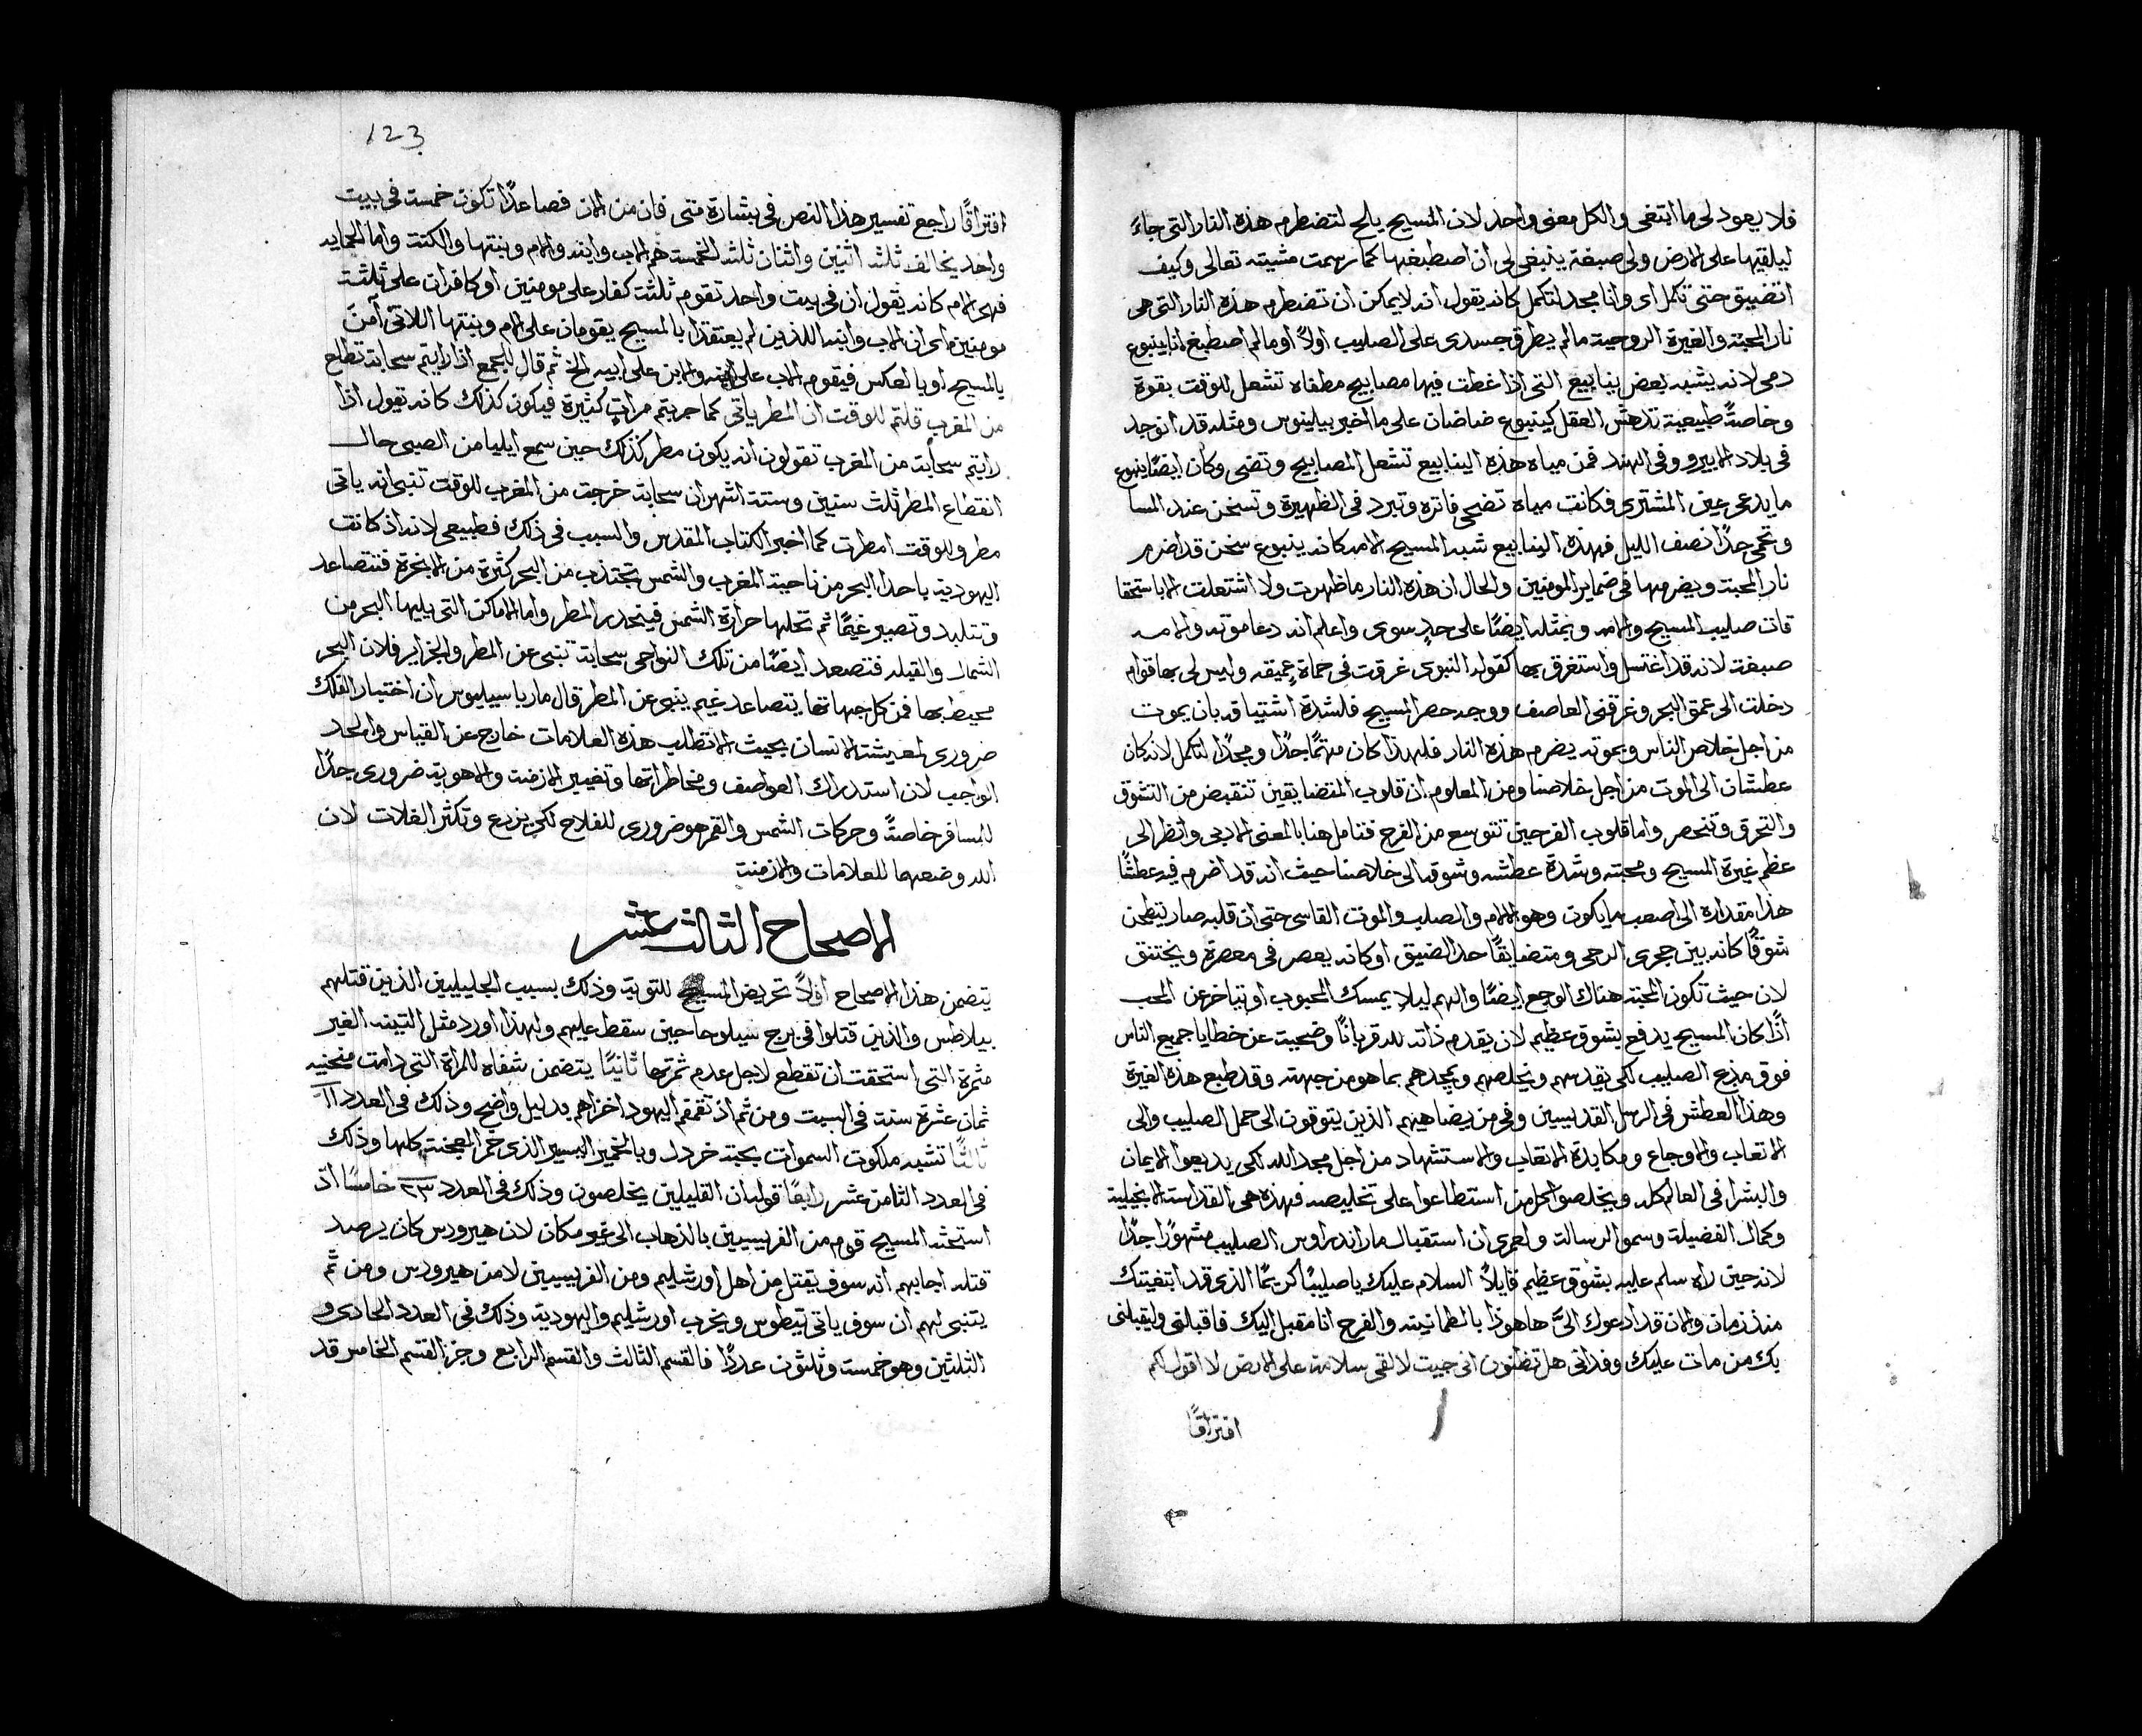 فلا يعود لى ما ابتغى والكل معنى واحد لان المسيح يلح لتضطرم هذه النار التى جاءَ
ليلقيها على الارض ولى صبغة ينبغى لى ان اصطبغها كما رسمت مشيته تعالى وكيف
اتضيق حتى تكمل اى وانا مجد لتكمل كانه يقول انه لا يمكن ان تضطرم هذه النار التى هى
نار المحبة والغيرة الروحية مالم يطرق جسدى على الصليب اولاً او مالم اصطبغ انا بينبوع
دمى لانه يشبه بعض ينابيع التى اذا غطت فيها مصابيح مطفاه تشعل للوقت بقوة
وخاصةً طبيعية تدهش العقل كينبوع ضاضان على ما اخبر بيلينوس ومثله قد انوجد
فى بلاد الابيرو وفى الهند فمن مياه هذه الينابيع تشعل المصابيح وتضى وكان ايضًا ينبوع
ما يدعى عين المشترى فكانت مياه تضحى فاترة وتبرد فى الظهيرة وتسخن عند المسا
وتحمى جدًا نصف الليل فهذه الينابيع شبه المسيح الامه كانه ينبوع سخن قد اضرم
نار المحبة ويضرمها فى ضماير المومنين والحال ان هذه النار ما ظهرت ولا اشتعلت الا باستحقا
قات صليب المسيح والامه وبمثله ايضًا على حدٍ سوى واعلم انه دعا موته والامه
صبغة لانه قد اغتسل واستغرق بها كقوله النبوى غرقت فى حماةٍ عميقه وليس لى بها قوام
دخلت الى عمق البحر وغرقنى العاصف ووجد حصر المسيح فلشدة اشتياقه بان يموت
من اجل خلاص الناس وبموته يضرم هذه النار فلهذا كان مهتمًا جدًا ومجدًا لتكمل لانه كان
عطشان الى الموت من اجل خلاصنا ومن المعلوم ان قلوب المتضايقين تنقبض من التشوق
والتحرق وتنحصر واما قلوب الفرحين تتوسع من الفرح فتامل هنا بالمعنى الادبى وانظر الى
عظم غيرة المسيح ومحبته وشدة عطشه وشوقه الى خلاصنا حيث انه قد اضرم فيه عطشًا
هذا مقداره الى اصعب ما يكون وهو الالام والصلب والموت القاسى حتى ان قلبه صار يتطحن
شوقًا كانه بين حجرى الرحى ومتضايقًا حد الضيق او كانه يعصر فى معصرة ويختنق
لان حيث تكون المحبة هناك الوجع ايضًا والهم ليلا يمسك المحبوب او يتاخر عن المحب
اذًا كان المسيح يدفع بشوق عظيم لان يقدم ذاته لله قربانًا وضحية عن خطايا جميع الناس
فوق مذبح الصليب لكى يقدسهم ويخلصهم ويمجدهم بما هو من جهته وقد طبع هذه الغيرة
وهذا العطش فى الرسل القديسين وفى من يضاهيهم الذين يتوقون الى حمل الصليب والى
الاتعاب والاوجاع ومكابدة الاتعاب والاستشهاد من اجل مجد الله لكى يذيعوا الايمان
والبشرا فى العالم كله ويخلصوا كل من استطاعوا على تخليصه فهذه هى القداسة الانجيلية
وكمال الفضيلة وسمو الرسالة ولعمرى ان استقبال مار اندراوس الصليب مشهورًا جدًا
لانه حين راه سلم عليه بشوق عظيم قايلاً السلام عليك يا صليبًا كريمًا الذى قد ابتغيتك
منذ زمان والان قد ادعوك الىَّ ها هوذا بالطمانينه والفرح انا مقبل اليك فاقبلنى وليقبلنى
بك من مات عليك وفدانى هل تظنون انى جيت لالقى سلامة على الارض لا اقول لكم
افتراقًا
123
افتراقًا راجع تفسير هذا النص فى بشارة متى فان من الان فصاعدًا تكون خمسة فى بيت
واحد يخالف ثلثه اثنين واثنان ثلثه الخمسة هم الاب وابنه والام وبنتها والكنة واما الحمايه
فهى الام كانه يقول ان فى بيت واحد تقوم ثلثة كفار على مومنين او كافران على ثلثة
مومنين اى ان الاب وابنه اللذين لم يعتقدا بالمسيح يقومان على الام وبنتها اللاتى آمنَ
بالمسيح او بالعكس فيقوم الاب على ابنه والابن على ابيه الخ ثم قال للجمع اذا رايتم سحابة تطلع
من المغرب قلتم للوقت ان المطر ياتى كما جربتم مراتٍ كثيرة فيكون كذلك كانه يقول اذا
رايتم سحابة من المغرب تقولون انه يكون مطر كذلك حين سمع ايليا من الصبى حال
انقطاع المطر ثلث سنين وستة اشهر ان سحابة خرجت من المغرب للوقت تنبى انه ياتى
مطر وللوقت امطرت كما اخبر الكتاب المقدس والسبب فى ذلك فطبيعى لانه اذ كانت
اليهودية ياحدا البحر من ناحية المغرب والشمس تجتذب من البحر كثرة من الابخرة فتتصاعد
وتتلبد وتصير غيمًا ثم تحلها حرارة الشمس فينحدر المطر واما الاماكن التى يليها البحر من
الشمال والقبله فتصعد ايضًا من تلك النواحى سحابة تنبى عن المطر والجزاير فلان البحر
محيط بها فمن كل جهاتها يتصاعد غيم ينبى عن المطر قال مار باسيليوس ان اختبار الفلك
ضرورى لمعيشة الانسان بحيث لا تطلب هذه العلامات خارج عن القياس والحد
الواجب لان استدراك العواصف ومخاطراتها وتغيير الازمنة والاهوية ضرورى جدًا
للمسافر خاصةً وحركات الشمس والقمر هو ضرورى للفلاح لكى يزرع وتكثر الغلات لان
الله وضعهما للعلامات والازمنة
الاصحاح الثالث عشر
يتضمن هذا الاصحاح اولاً تحريض المسيح للتوبة وذلك بسبب الجليليين الذين قتلهم
بيلاطس والذين قتلوا فى برج سيلوحا حين سقط عليهم ولهذا اورد مثل التينه الغير
مثمرة التى استحقت ان تقطع لاجل عدم ثمرتها ثانيًا يتضمن شفاه للمراة التى دامت منحنيه
ثمان عشرة سنة فى السبت ومن ثم اذ تقمقم اليهود اخزاهم بدليل واضح وذلك فى العدد ١١
ثالثًا تشبه ملكوت السموات بحبة خردل وبالخمير اليسير الذى خمر العجنة كلها وذلك
فى العدد الثامن عشر رابعًا قوله ان القليلين يخلصون وذلك فى العدد ٢٣ خامسًا اذ
استحثه المسيح قوم من الفريسيين بالذهاب الى غير مكان لان هيرودس كان يرصد
قتله اجابهم انه سوف يقتل من اهل اورشليم ومن الفريسيين لا من هيرودس ومن ثم
يتنبى لهم ان سوف ياتى تيطوس ويخرب اورشليم واليهودية وذلك فى العدد الحادى و
الثلثين وهو خمسة وثلثون عددًا فالقسم الثالث والقسم الرابع وجز القسم الخامس قد